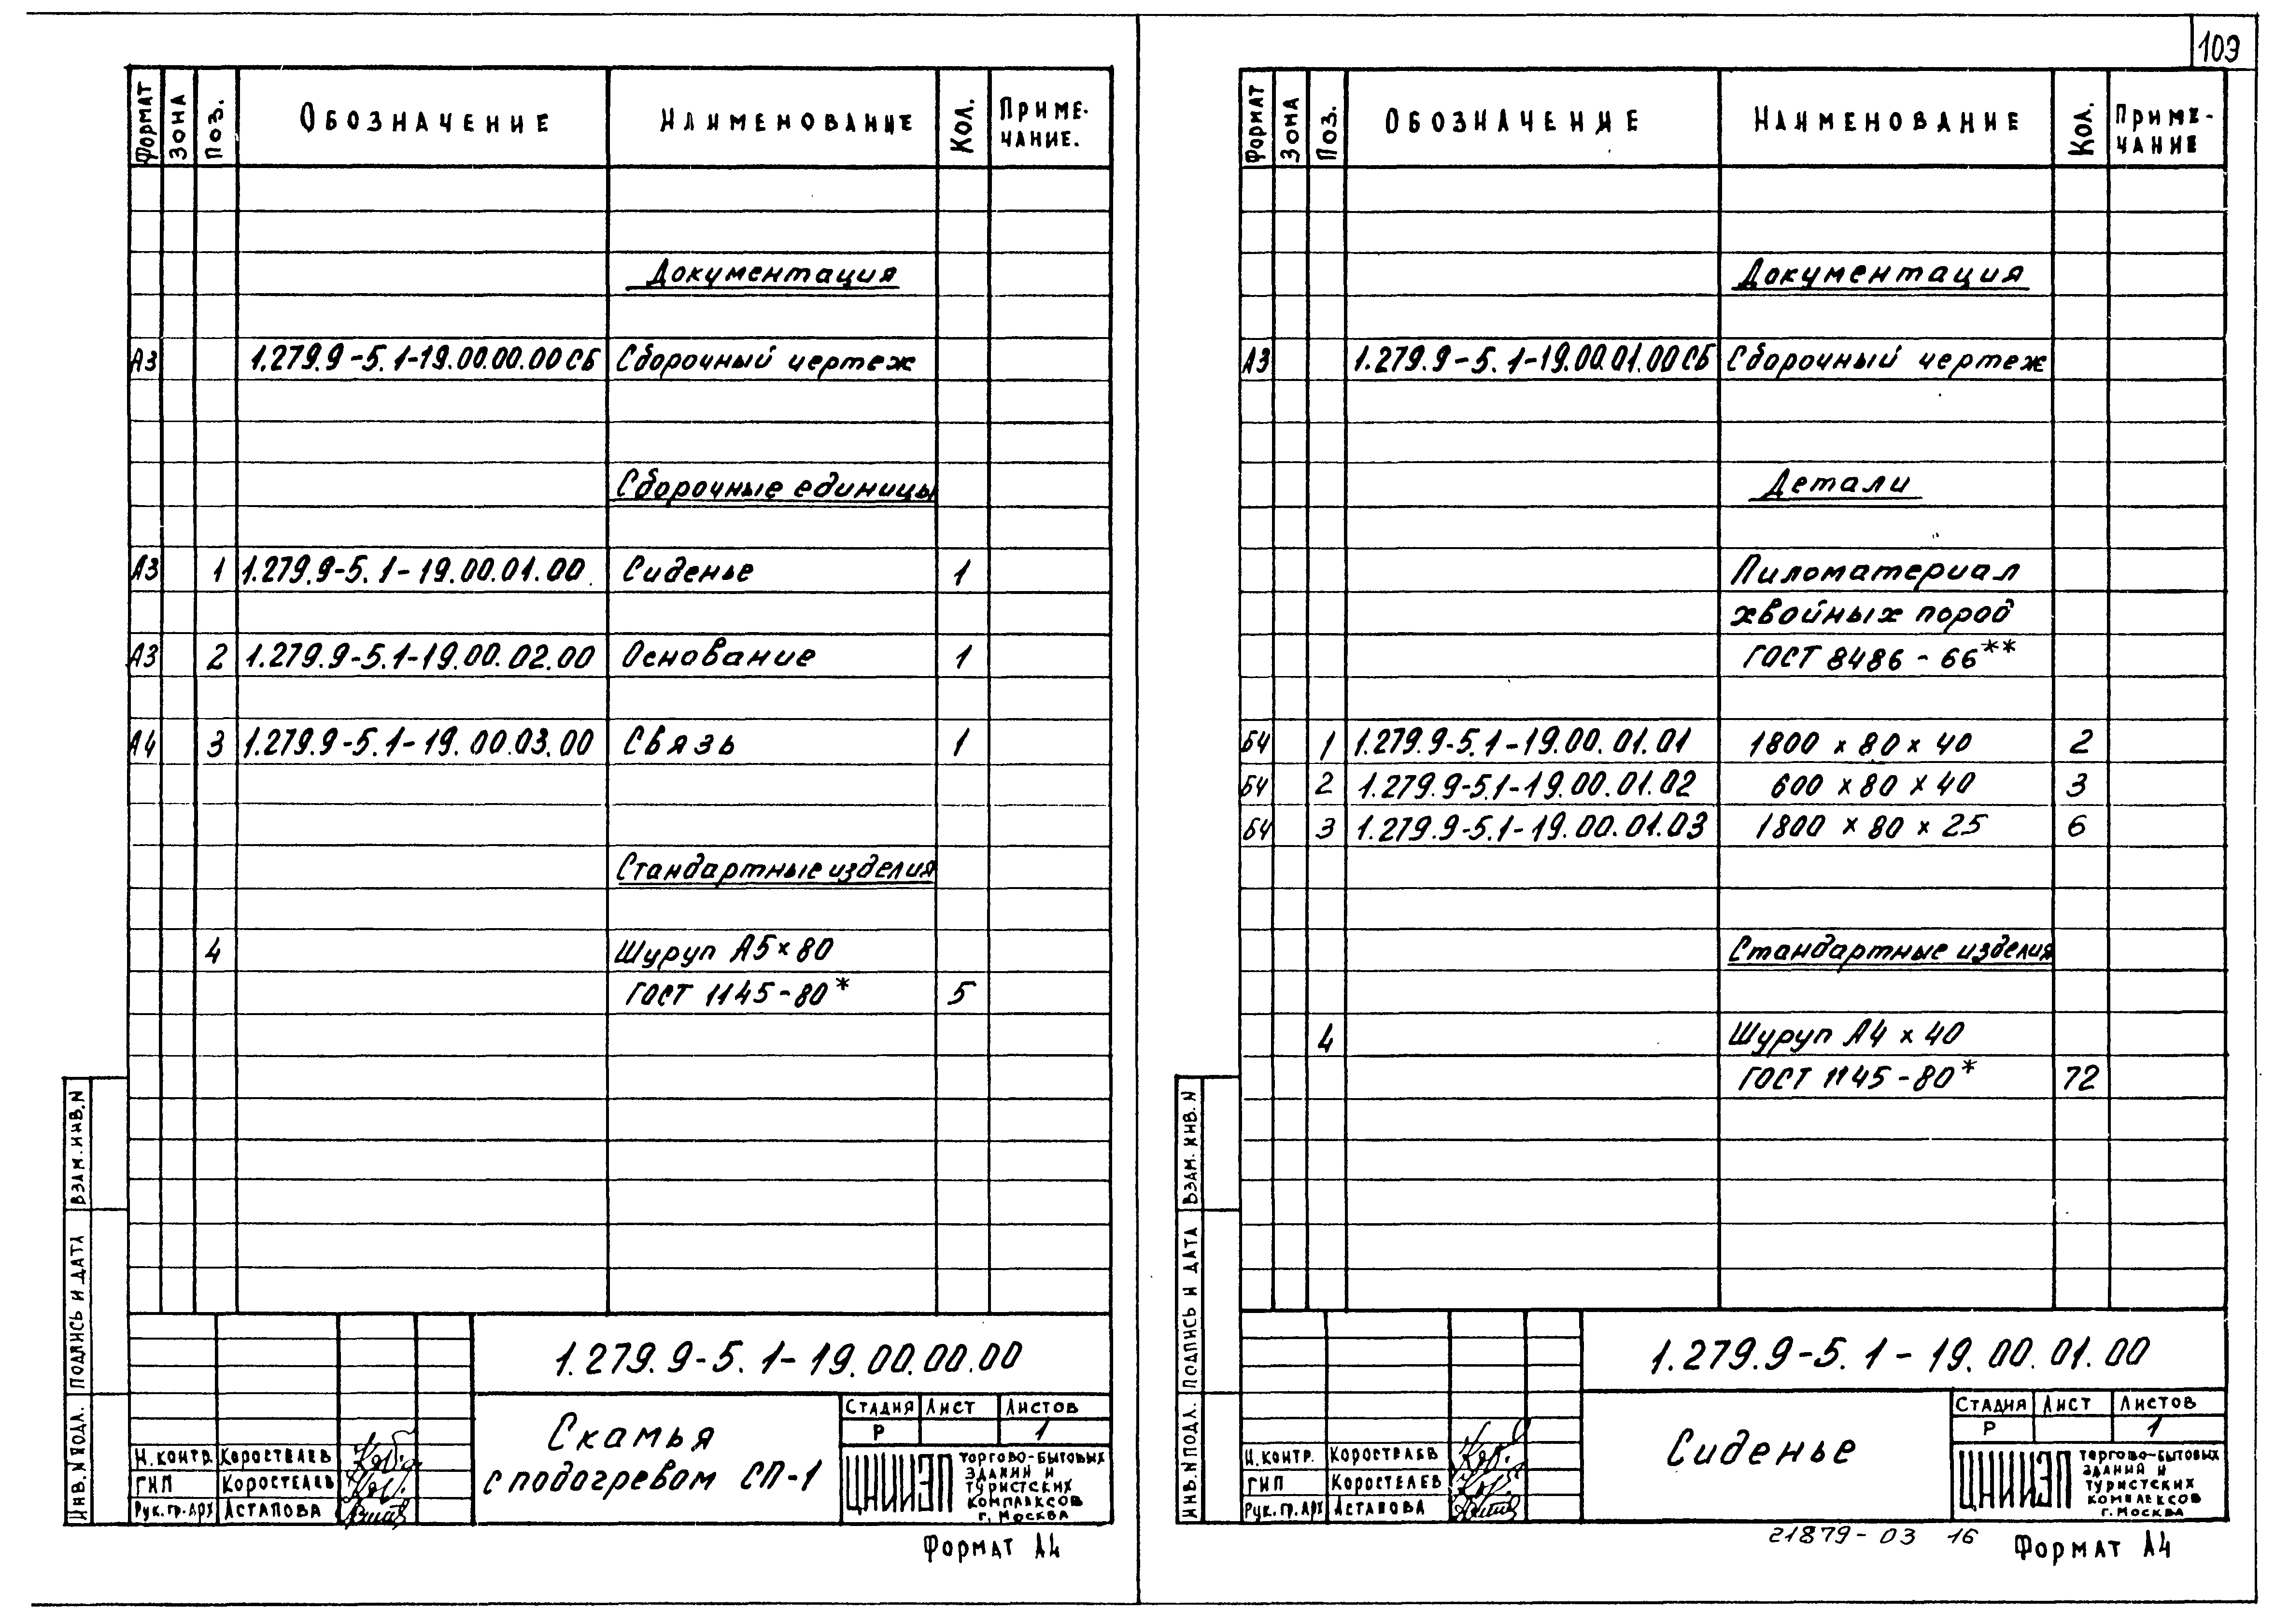 103
Формат Зона Поз. Обозначение Наименование Кол. Примечание.
Документация
А3 1.279.9-5.1-19.00.00.00СБ Сборочный чертеж
Сборочные единицы
А3 1 1.279.9-5.1-19.00.01.00 Сиденье 1
А3 2 1.279.9-5.1-19.00.02.00 Основание 1
А4 3 1.279.9-5.1-19.00.03.00 Связь 1
Стандартные изделия
4 Шуруп А5×80
ГОСТ 1145-80* 5
Взам.инв.N
Подпись и дата
Инв.N подл.
1.279.9-5.1-19.00.00.00
Скамья
с подогревом СП-1
Стадия Лист Листов
Р 1
Н.контр. Коростелев
ГИП Коростелев
Рук.гр.арх Астапова
ЦНИИЭП торгово-бытовых
зданий и
туристских
комплексов
г. Москва
Формат А4
Формат Зона Поз. Обозначение Наименование Кол. Примечание
Документация
А3 1.279.9-5.1-19.00.01.00СБ Сборочный чертеж
Детали
Пиломатериал
хвойных пород
ГОСТ 8486-66**
Б4 1 1.279.9-5.1-19.00.01.01 1800×80×40 2
Б4 2 1.279.9-5.1-19.00.01.02 600×80×40 3
Б4 3 1.279.9-5.1-19.00.01.03 1800×80×25 6
Стандартные изделия
4 Шуруп А4×40
ГОСТ 1145-80* 72
Взам.инв.N
Подпись и дата
Инв.N подл.
1.279.9-5.1-19.00.01.00
Сиденье
Стадия Лист Листов
Р 1
Н.контр. Коростелев
ГИП Коростелев
Рук.гр.арх Астапова
ЦНИИЭП торгово-бытовых
зданий и
туристских
комплексов
г. Москва
21879-03 16
Формат А4